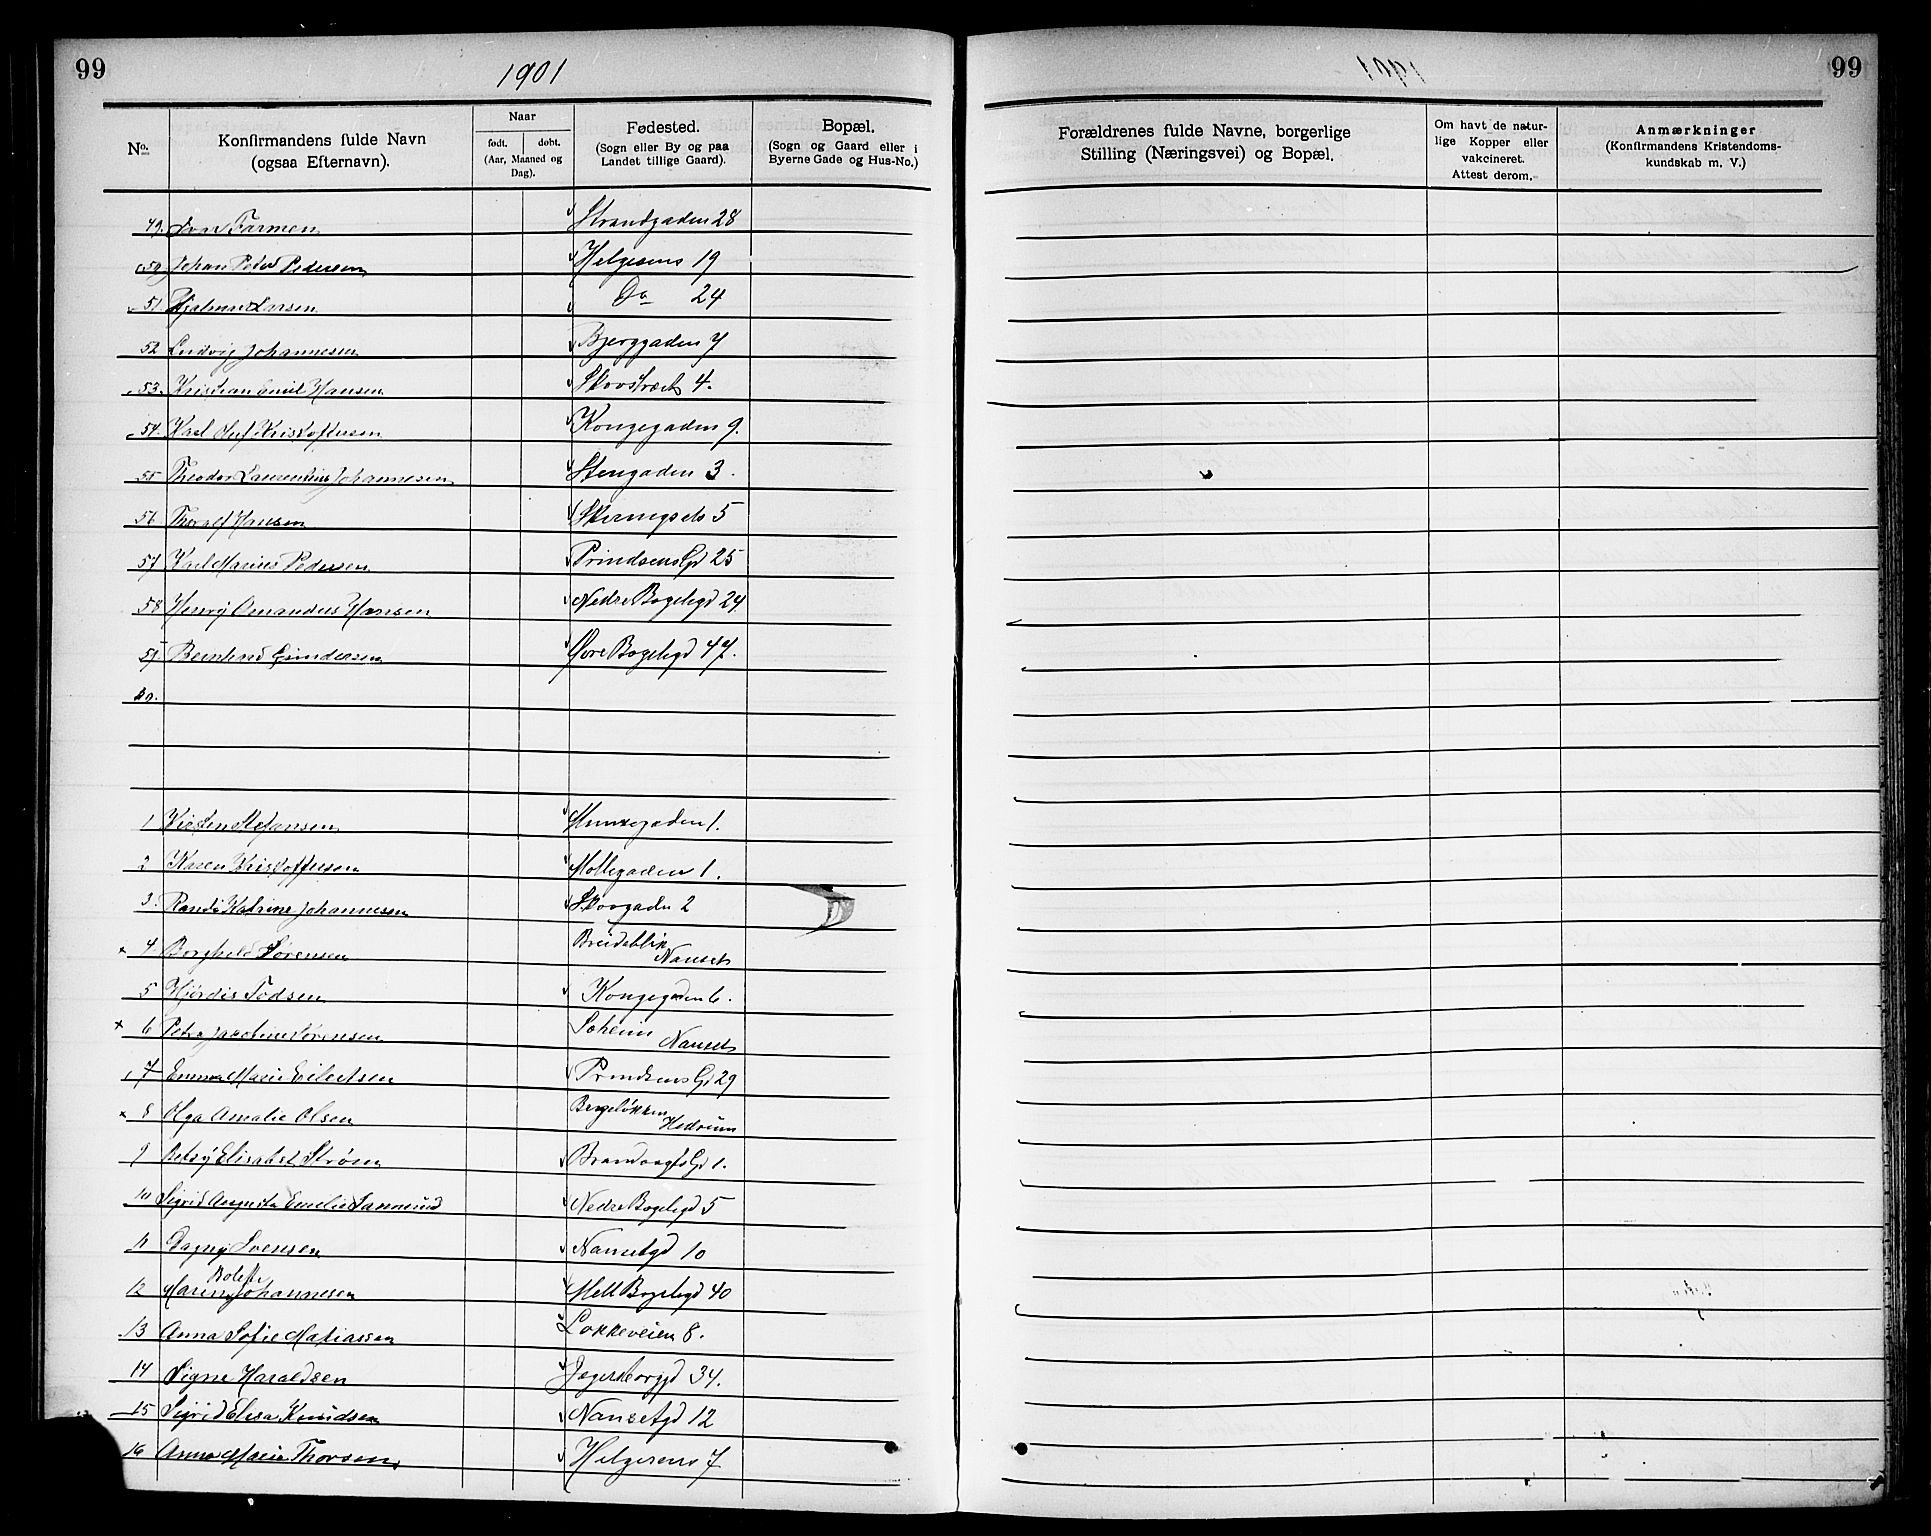 99
1901
No.
Konfirmandens fulde Navn
(ogsaa Efternavn).
Naar
født. døbt.
(Aar, Maaned og
Dag).
Fødested.
(Sogn eller By og paa
Landet tillige Gaard).
Bopæl.
(Sogn og Gaard eller i
Byerne Gade og Hus-No.)
49. Ivar Farmen Strandgaden 28
50 Johan Peder Pedersen Helgesens 19
51 Hjalmar Larsen Do 24
52 Ludvig Johannesen Bjerggaden 7
53. Kristian Emil Hansen 4.
54. Karl Olaf Kristoffersen Kongegaden 9.
55 Theodor Laurentius Johannesen Stengaden 3.
56 Thoralf Hansen 5
57 Karl Marius Pedersen Prindsens Gd 25
58 Henry Amandus Hansen Nedre Bøgeligd 24
59 Bernhard Gundersen Øvre Bøgeligd 47.
60.
1 Kirsten Stefansen 1.
2 Karen Kristoffersen Møllegaden 1.
3. Randi Katrine Johannesen Skovgaden 2
× 4. Borghild Sørensen Breideblik
Nanset
5 Hjørdis Todsen Kongegaden 6.
× 6 Petra Sørensen Solheim
Nanset
7 Emma Marie Eilertsen Prindsens Gd 29
× 8 Olga Amalie Olsen Bergeløkken
Hedrum
9 Betsy Elisabet Strøm Brandvagts Gd 1.
10 Sigrid Augusta Emelie Nedre Bøgeligd 5
11 Dagny Svensen Nansetgd 10
Bolette
12 Maren Johannesen Mell Bøgeligd 40
13 Anna Sofie Matiassen Løkkeveien 8.
14 Signe Haraldsen Jegersborggd 34.
15 Sigrid Elisa Knudsen Nansetgd 12
16 Anna Marie Thorsen Helgesens 7
99
Forældrenes fulde Navne, borgerlige
Stilling (Næringsvei) og Bopæl.
Om havt de natur-
lige Kopper eller
vakcineret.
Attest derom.
Anmærkninger
(Konfirmandens Kristendoms-
kundskab m. V.)